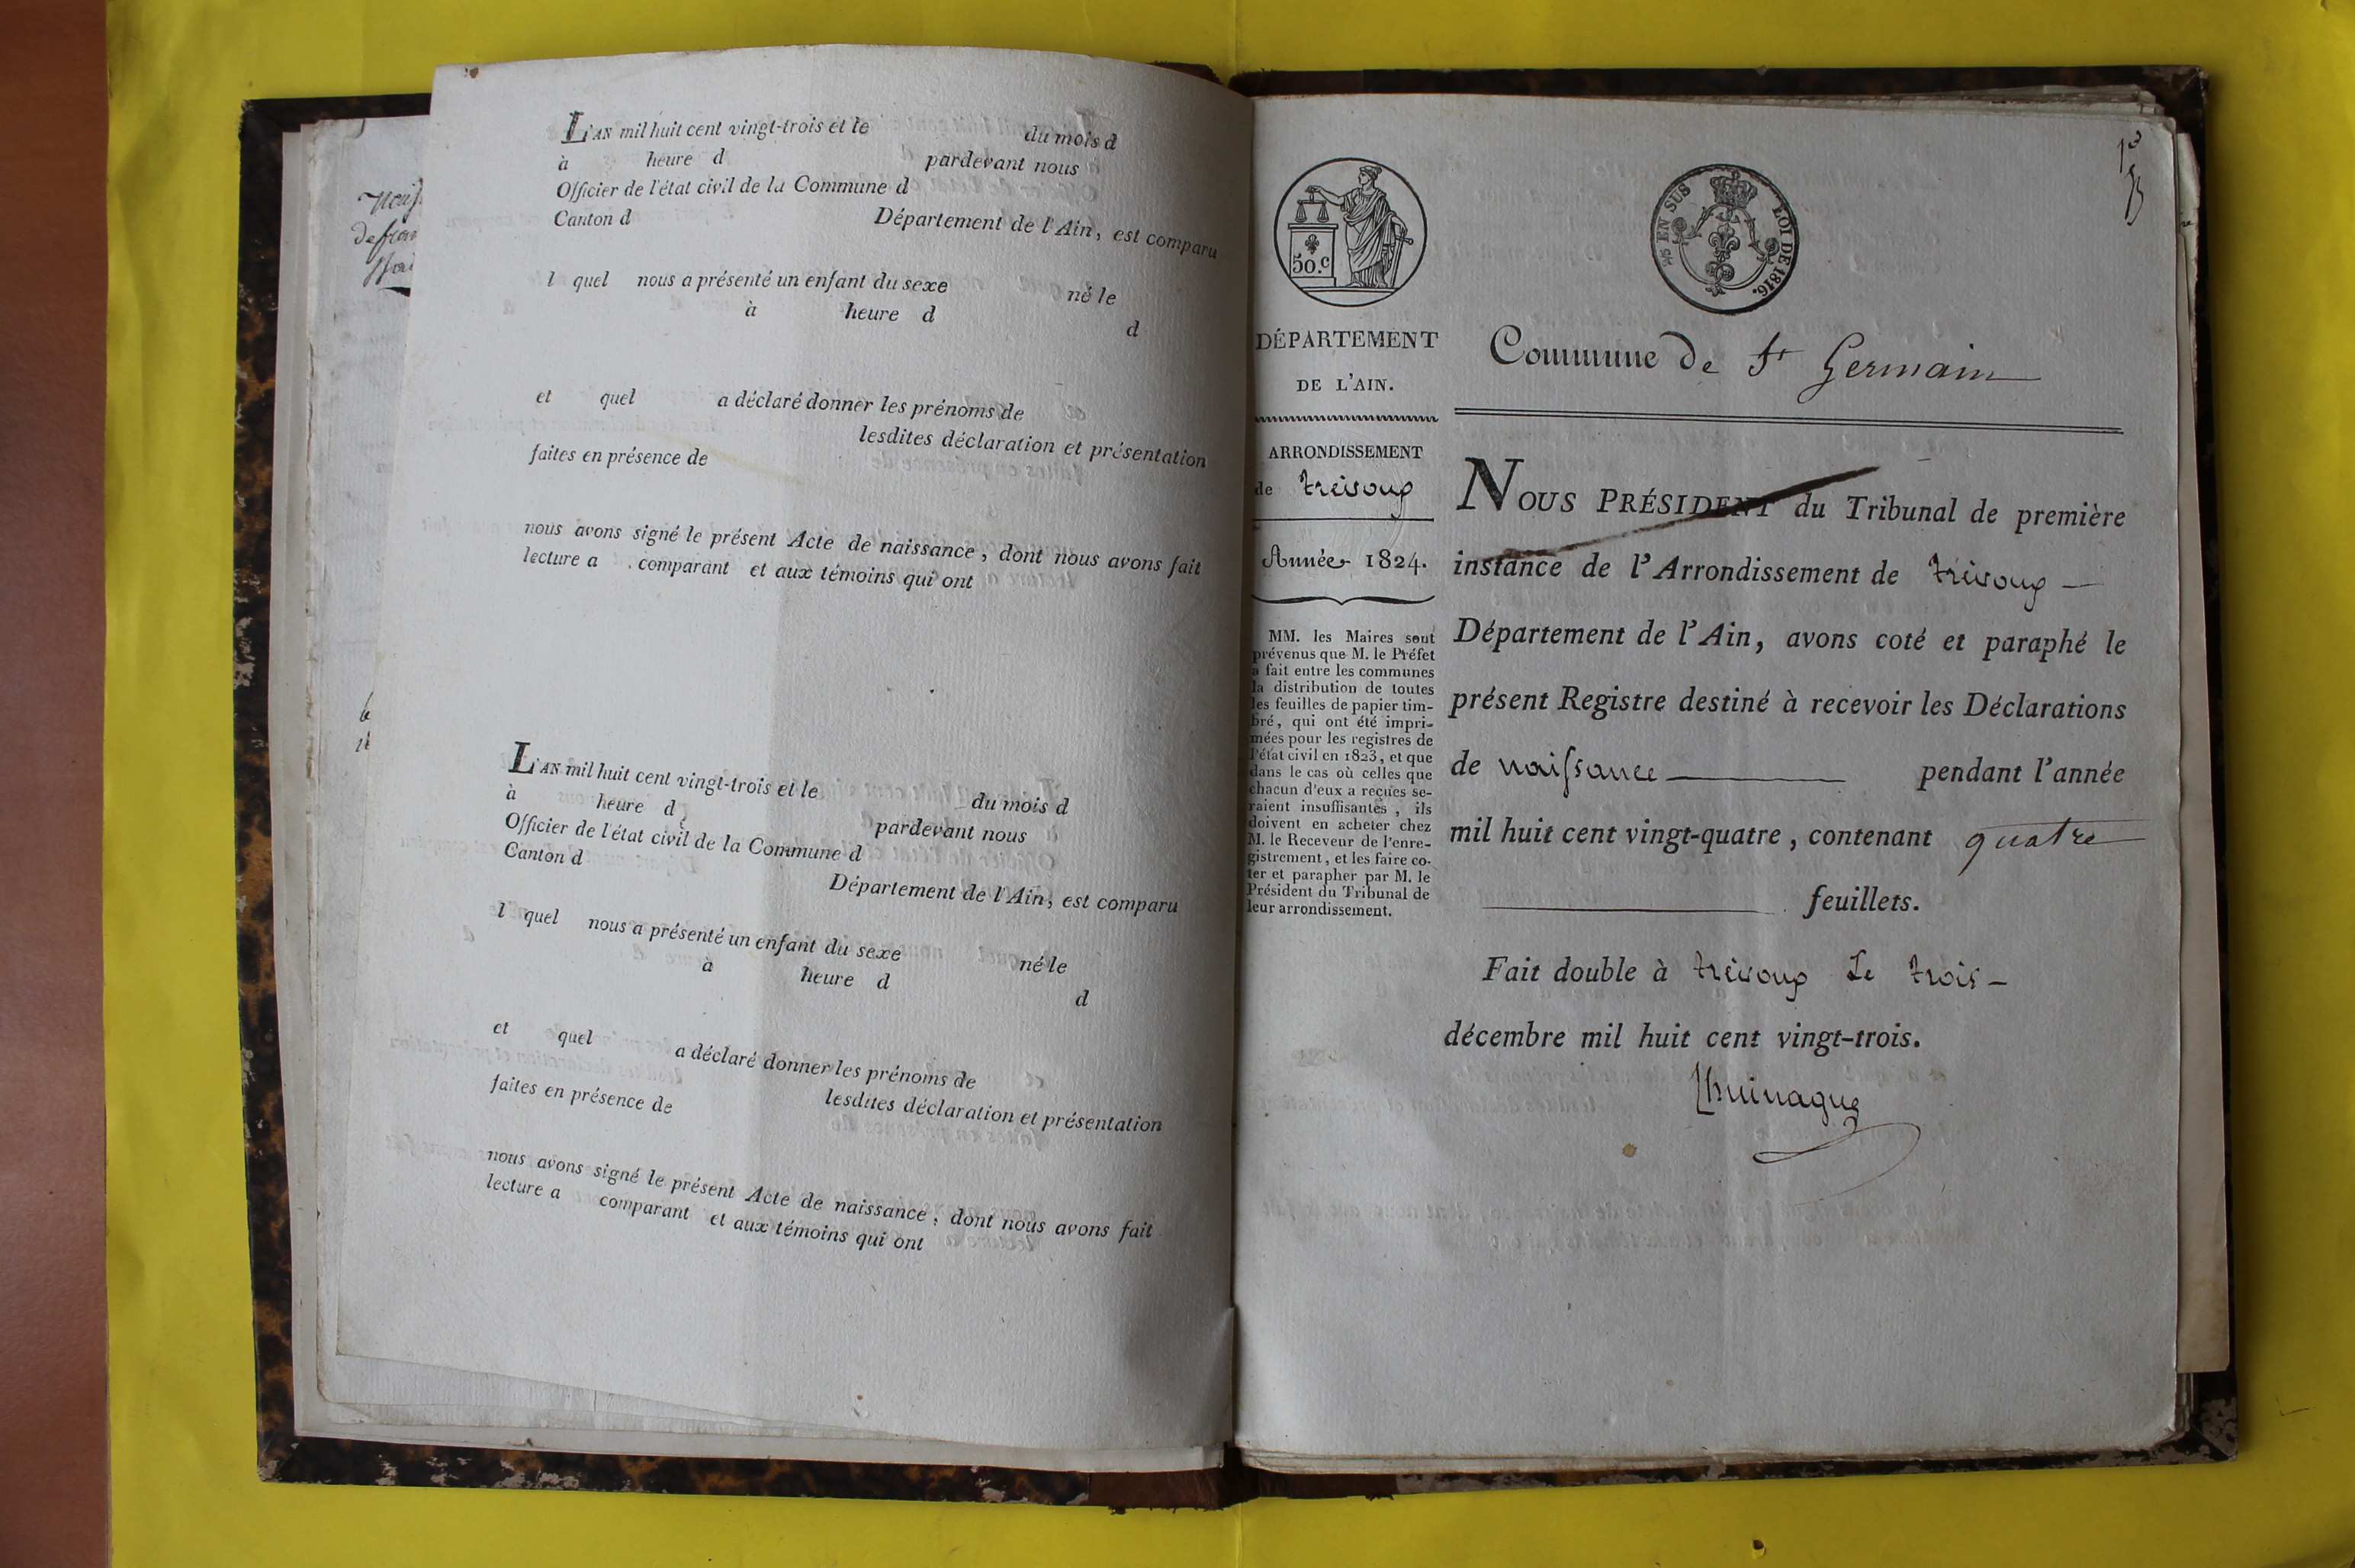 Naiss
de fran
L'AN mil huit cent vingt-trois et le du mois d
à heure d pardevant nous
Officier de l'état civil de la Commune d
Canton d Département de l'Ain, est comparu
l quel nous a présenté un enfant du sexe né le
à heure d d
et quel a déclaré donner les prénoms de
lesdites déclaration et présentation
faites en présence de
nous avons signé le présent Acte de naissance, dont nous avons fait
lecture a comparant et aux témoins qui ont
L'AN mil huit cent vingt-trois et le du mois d
à heure d pardevant nous
Officier de l'état civil de la Commune d
Canton d Département de l'Ain, est comparu
l quel nous a présenté un enfant du sexe né le
à heure d d
et quel a déclaré donner les prénoms de
lesdites déclaration et présentation
faites en présence de
nous avons signé le présent Acte de naissance, dont nous avons fait
lecture a comparant et aux témoins qui ont
50.c
EN SUS LOI DE 1816.
DÉPARTEMENT
DE L'AIN.
ARRONDISSEMENT
de trévoux
Année 1824.
MM. les Maires sont
prévenus que M. le Préfet
a fait entre les communes
la distribution de toutes
les feuilles de papier tim-
bré, qui ont été impri-
mées pour les registres de
l'état civil en 1823, et que
dans le cas où celles que
chacun d'eux a reçues se-
raient insuffisantes, ils
doivent en acheter chez
M. le Receveur de l'enre-
gistrement, et les faire co-
ter et parapher par M. le
Président du Tribunal de
leur arrondissement.
Commune de St Germain
NOUS PRÉSIDENT du Tribunal de première
instance de l'Arrondissement de trévoux
Département de l'Ain, avons coté et paraphé le
présent Registre destiné à recevoir les Déclarations
de naissance pendant l'année
mil huit cent vingt-quatre, contenant quatre
feuillets.
Fait double à trévoux Le trois
décembre mil huit cent vingt-trois.